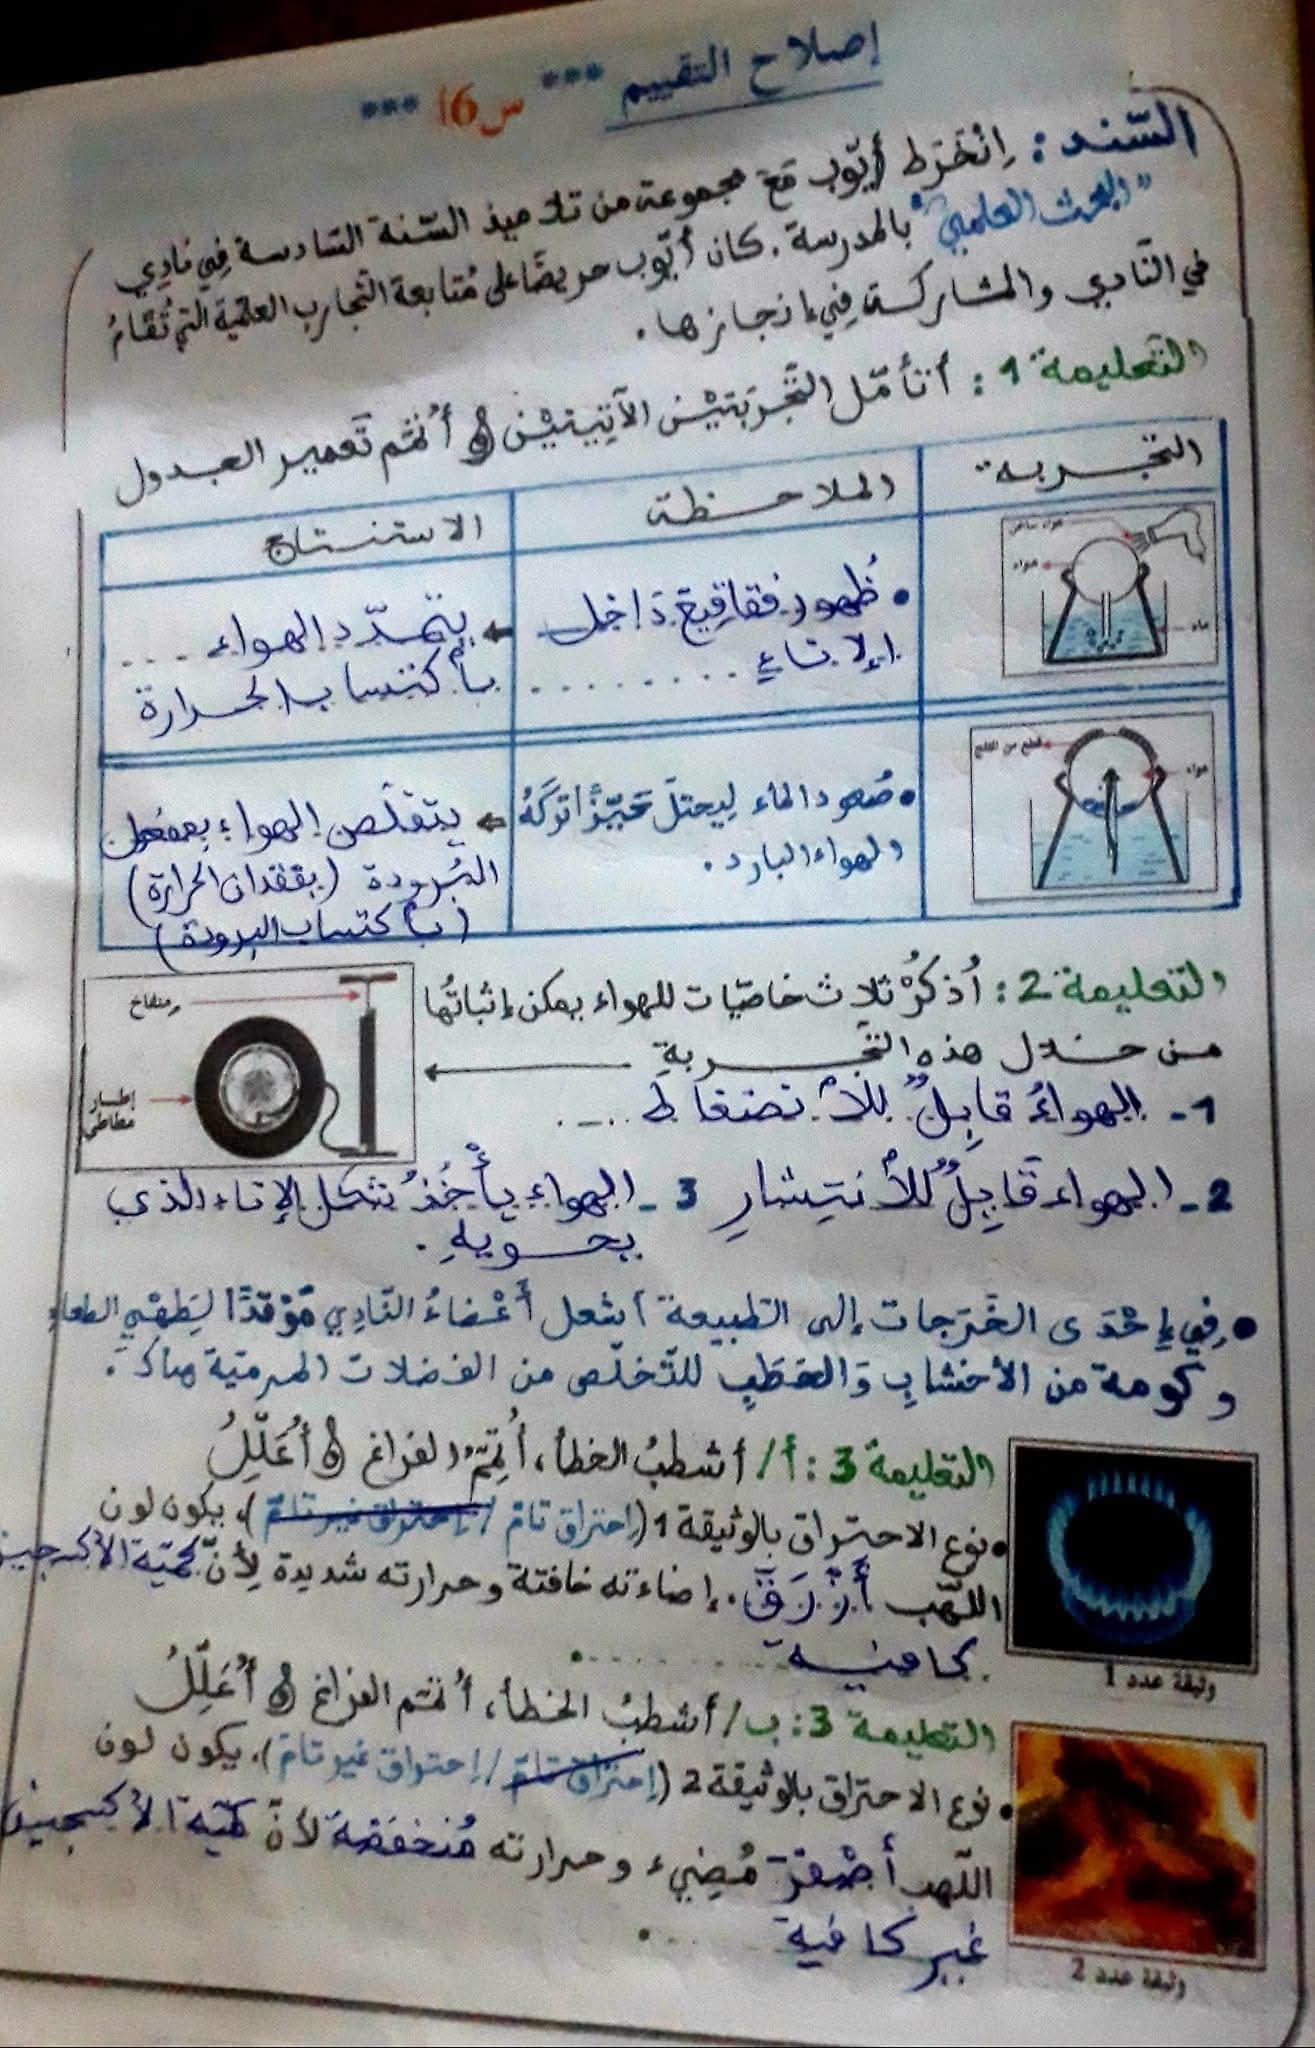 إصلاح التقييم *** س6أ ***
السّند: اِنْخَرَط أيّوب مَعَ مجموعة من تلاميذ السّنة السّادسة فِي نَادِي
"البحث العلمي" بالمدرسة. كان أيّوب حريصًا على مُتابعة التّجارب العلميّة التي تُقَامُ
في النّادي والمشاركة فِي إنجازها.
التّعليمة 1: أتأمّل التّجْرِبَتَيْن الآتِيتَيْن و أُتَمّم تَعمير الجدول
التّجربة
الملاحظة
الاستنتاج
هواء ساخن
هواء
ماء
• ظُهور فقاقِيعَ دَاخل
الإناءِ ........
← يتمدّد الهواء ....
باكتساب الحرارة
قطع من الثلج
هواء
• صُعود الماء لِيحتلّ حَيّزًا تركَهُ
الهواء البارد.
← يتقلّص الهواء بمفعول
البُرودة (بفقدان الحرارة)
(باكتساب البرودة)
التعليمة 2: أُذكُرْ ثلاث خاصّيات للهواء يمكن إثباتُها
من خلال هذه التّجربةِ
منفاخ
إطار مطاطي
1- الهواءُ قابِلٌ للاْنضغاط .....
2- الهواء قَابِلٌ للاْنتِشارِ 3- الهواء يأْخُذُ شكل الإناء الذي
يحويهِ.
• فِي إِحْدَى الخَرَجات إلى الطّبيعة أشعل أَعْضاءُ النّادِي مَوْقدًا لِطَهْيِ الطعام
وكومة من الأخشابِ وَالحَطَبِ للتّخلّص من الفضلات المرميّة هناكَ.
التعليمة 3: أ/ أشطبُ الخطأ، أُتِمّمُ الفراغ و أُعَلِّلُ
• نوع الاحتراق بالوثيقة 1 (إحتراق تامّ / إحتراق غير تامّ). يكون لون
اللّهب أَزْرَقَ. إضاءته خافتة وحرارته شديدة لِأنّ كميّة الأكسجين
كافيةَ ........
وثيقة عدد 1
التعليمة 3: ب/ أشطبُ الخطأ، أُتمّم الفراغ و أُعَلِّلُ
• نوع الاحتراق بالوثيقة 2 (إحتراق تامّ / إحتراق غير تامّ). يكون لون
اللّهب أصْفرَ مُضِيء وحرارته مُنخفضة لأنّ كميّة الأكسجين
غير كافية .....
وثيقة عدد 2